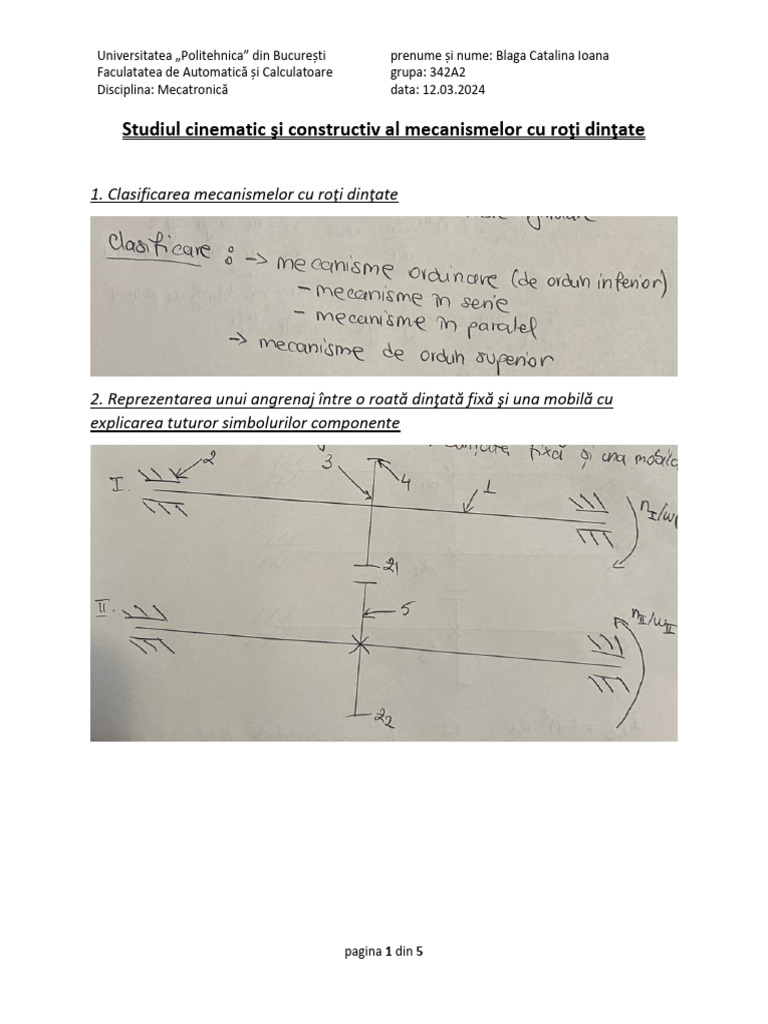 Universitatea „Politehnica” din București
prenume și nume: Blaga Catalina Ioana
Faculatatea de Automatică și Calculatoare
grupa: 342A2
Disciplina: Mecatronică
data: 12.03.2024
Studiul cinematic şi constructiv al mecanismelor cu roţi dinţate
1. Clasificarea mecanismelor cu roţi dinţate
Clasificare : -> mecanisme ordinare (de ordin inferior)
- mecanisme în serie
- mecanisme în paralel
-> mecanisme de ordin superior
2. Reprezentarea unui angrenaj între o roată dinţată fixă şi una mobilă cu
explicarea tuturor simbolurilor componente
fixă și una mobilă
I.
2
3
4
1
nI/ω
z1
II.
5
nII/ωII
z2
pagina 1 din 5